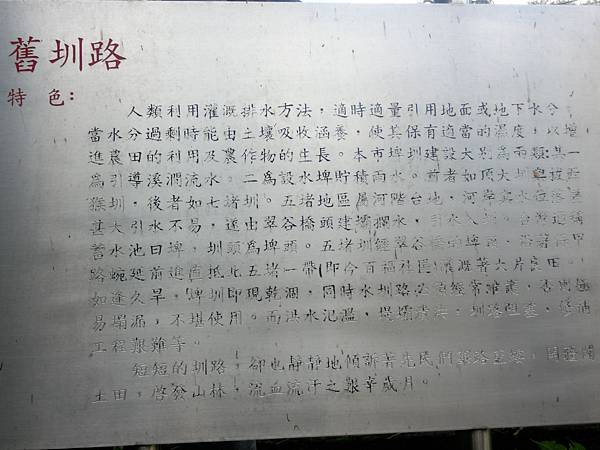 舊圳路
特色：
人類利用灌溉排水方法，適時適量引用地面或地下水分，
當水分過剩時能由土壤吸收涵養，使其保有適當的濕度，以增
進農田的利用及農作物的生長。本市埤圳建設大別為兩類其一
為引導溪澗流水。二為設水埤貯積雨水。前者如頂大圳
猴圳，後者如七堵圳。五堵地區屬河階台地，河岸與水位落差
甚大引水不易，遂由翠谷橋頭建壩攔水，引水入圳。台灣通稱
蓄水池曰埤，圳頭為埤頭。五堵圳經翠谷橋的埤頭，沿著
路蜿延前進直抵北五堵一帶(即今百福社區)灌溉著大片良田。
如逢久旱，埤圳即現乾涸，同時水圳路必須經常維護，否則極
易塌漏，不堪使用。而洪水氾濫，堤壩，圳路阻塞，
工程艱難等。
短短的圳路，卻也靜靜地傾訴著先民們篳路藍縷，開
土田，啓發山林，流血流汗之艱辛歲月。